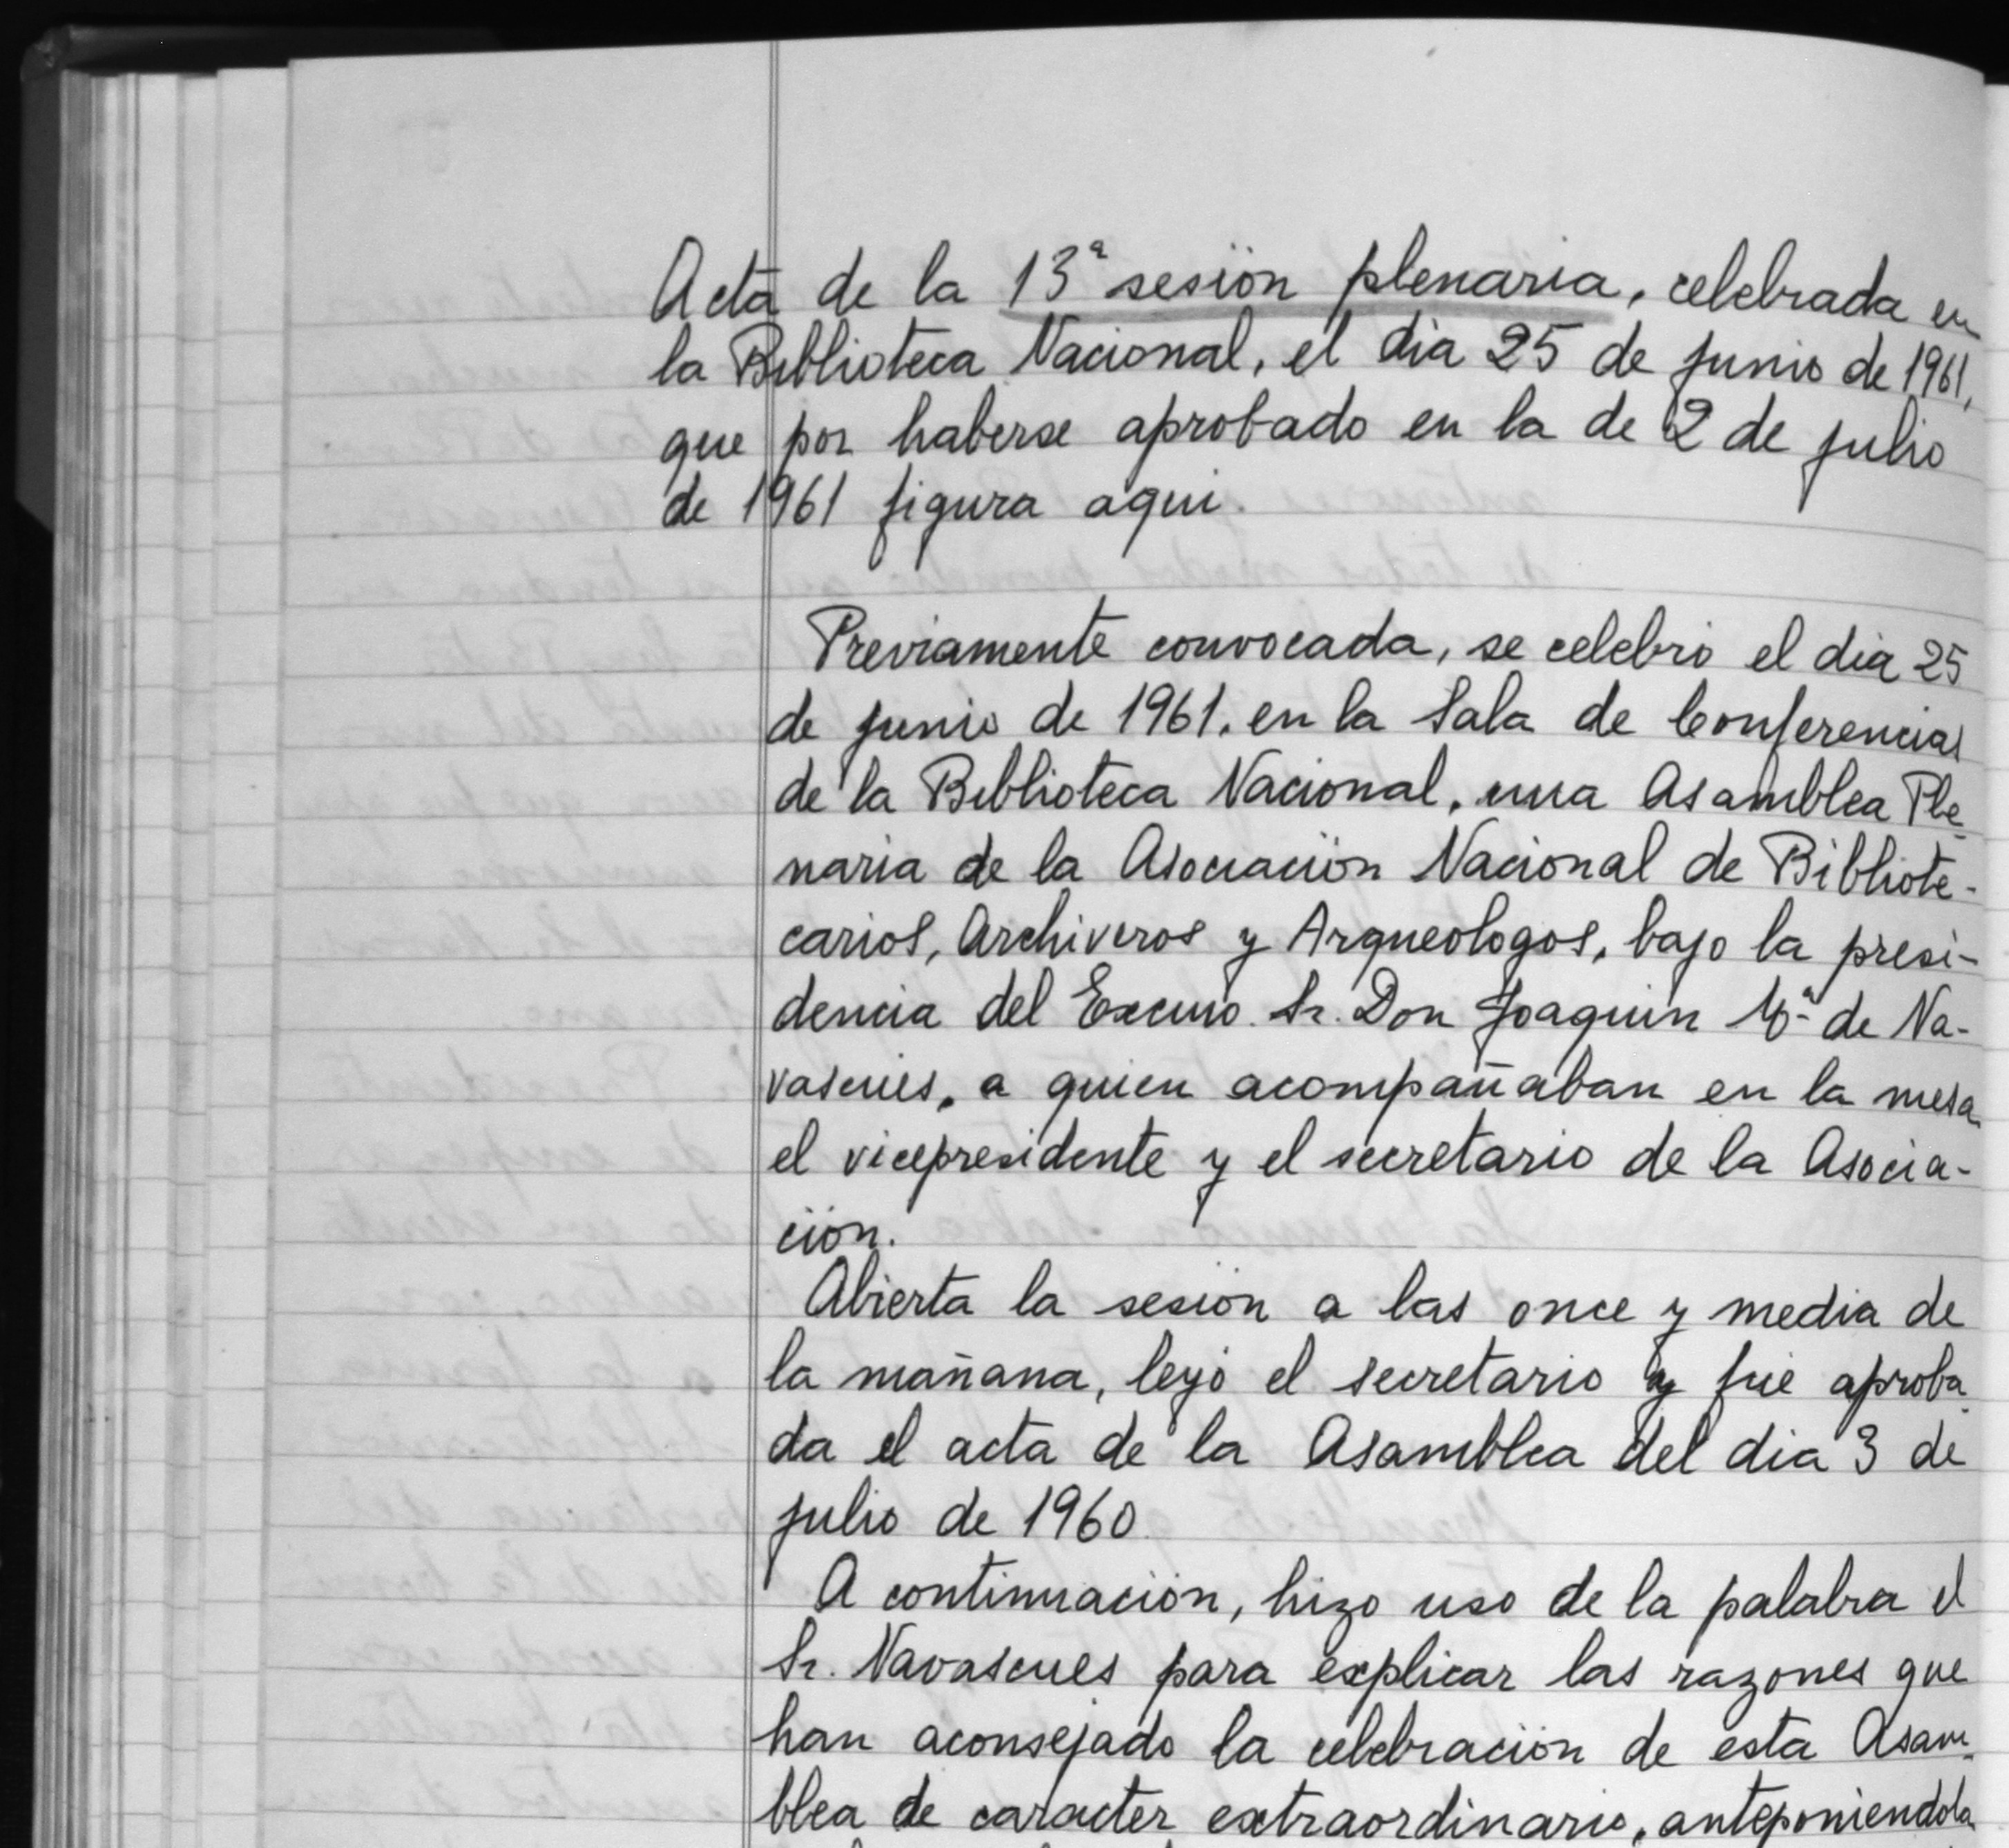 Acta de la 13ª sesión plenaria, celebrada en
la Biblioteca Nacional, el dia 25 de junio de 1961,
que por haberse aprobado en la de 2 de julio
de 1961 figura aqui.
Previamente convocada, se celebró el dia 25
de junio de 1961, en la Sala de Conferencias
de la Biblioteca Nacional, una Asamblea Ple-
naria de la Asociación Nacional de Bibliote-
carios, Archiveros y Arqueologos, bajo la presi-
dencia del Excmo. Sr. Don Joaquin Mª de Na-
vascués, a quien acompañaban en la mesa
el vicepresidente y el secretario de la Asocia-
ción.
Abierta la sesión a las once y media de
la mañana, leyó el secretario y fué aproba-
da el acta de la Asamblea del dia 3 de
julio de 1960.
A continuación, hizo uso de la palabra el
Sr. Navascués para explicar las razones que
han aconsejado la celebración de esta Asam-
blea de caracter extraordinario, anteponiendola